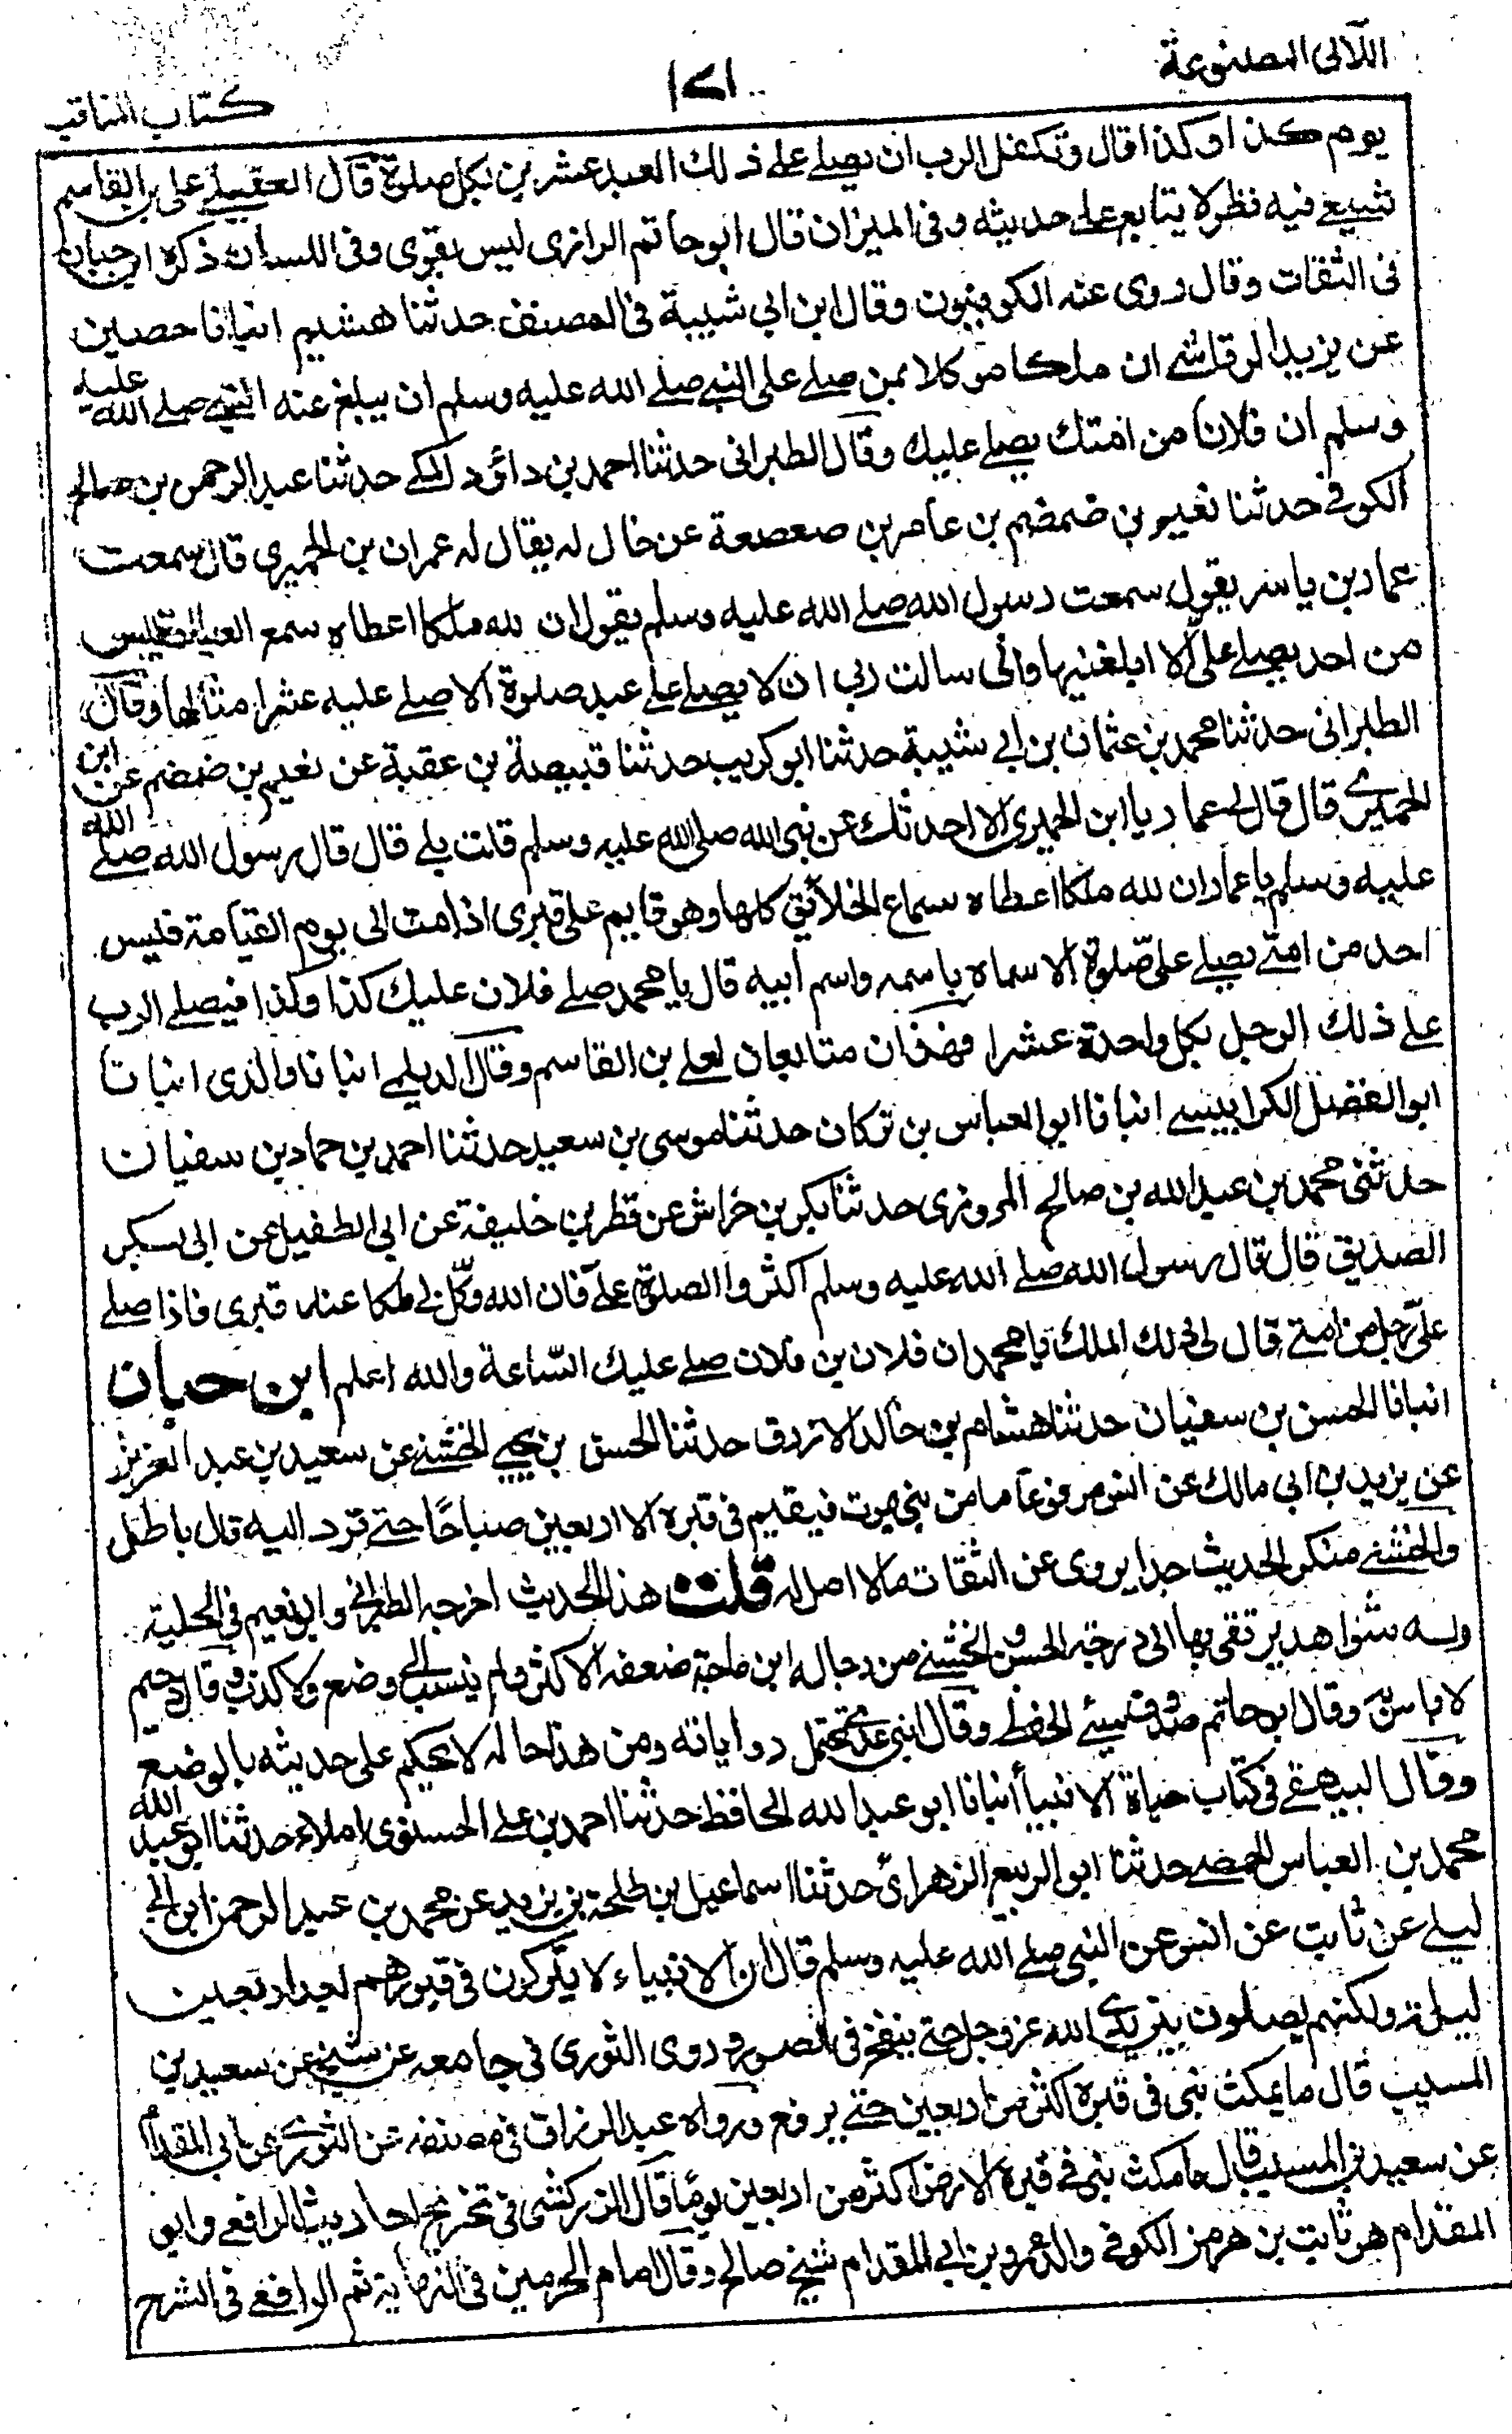 اللآلى المصنوعة
١٤١
كتاب المناقب
يوم كذا وكذا قال وتكفل الرب ان يصلے علے ذلك العبد عشرين بكل صلوة قال العقيلے علي بن القاسم
شيعے فيه نظر لا يتابع علے حديثه وفى الميزان قال ابو حاتم الرازى ليس بقوى وفى اللسان ذكره ابن حبان
فى الثقات وقال روى عنه الكوفيون وقال ابن ابى شيبة فى المصنف حدثنا هشيم انبانا حصين
عن يزيد الرقاشے ان ملكا موكلا بمن صلے على النبے صلے الله عليه وسلم ان يبلغ عنه النبے صلے الله عليه
وسلم ان فلانا من امتك يصلے عليك وقال الطبرانى حدثنا احمد بن داؤد المكے حدثنا عبد الرحمن بن صالح
الكوفے حدثنا نعيم بن ضمضم بن عامر بن صعصعة عن خال له يقال له عمران بن الحميرى قال سمعت
عمار بن ياسر يقول سمعت رسول الله صلے الله عليه وسلم يقول ان لله ملكا اعطاه سمع العباد فليس
من احد يصلے علىّ الا ابلغنيها وانى سالت ربى ان لا يصلے علے عبد صلوة الا صلے عليه عشرا مثالها وقال
الطبرانى حدثنا محمد بن عثمان بن ابے شيبة حدثنا ابو كريب حدثنا قبيصة بن عقبة عن نعيم بن ضمضم عن ابن
الحميرے قال قال لے عمار يا ابن الحميرى الا احدثك عن نبى الله صلى الله عليه وسلم قلت بلے قال قال رسول الله صلے الله
عليه وسلم يا عمار ان لله ملكا اعطاه سماع الخلائق كلها وهو قايم على قبرى اذا مت الى يوم القيامة فليس
احد من امتے يصلے علىّ صلوة الا سماه باسمه واسم ابيه قال يا محمد صلے فلان عليك كذا وكذا فيصلے الرب
علے ذلك الرجل بكل واحدة عشرا فهذان متابعان لعلے بن القاسم وقال الديلمے انبانا والدى انبانا
ابو الفضل الكرابيسے انبانا ابو العباس بن تركان حدثنا موسى بن سعيد حدثنا احمد بن حماد بن سفيان
حدثنى محمد بن عبد الله بن صالح المروزى حدثنا بكر بن خراش عن قطر بن خليفة عن ابى الطفيل عن ابى بكر
الصديق قال قال رسول الله صلے الله عليه وسلم اكثروا الصلوة علےّ فان الله وكّل بے ملكا عند قبرى فاذا صلے
علىّ رجل من امتے قال لى ذلك الملك يا محمد ان فلان بن فلان صلے عليك السّاعة والله اعلم ابن حبان
انبانا الحسن بن سفيان حدثنا هشام بن خالد الازرق حدثنا الحسن بن يحيے الخشنے عن سعيد بن عبد العزيز
عن يزيد بن ابى مالك عن انس مرفوعًا ما من نبى يموت فيقيم فى قبره الا اربعين صباحًا حتے ترد اليه قال باطل
والخشنے منكر الحديث جدا يروى عن الثقات ما لا اصل له قلت هذا الحديث اخرجه الطبرانے وابو نعيم فى الحلية
وله شواهد يرتقى بها الى درجة الحسن والخشنے من رجال ابن ماجة ضعفه الاكثر ولم ينسب الى وضع ولا كذب وقال دحيم
لا باس به وقال ابو حاتم صدوق سيئے الحفظ وقال ابن عدى تحتمل رواياته ومن هذا حاله لا يحكم على حديثه بالوضع
وقال البيهقے فى كتاب حياة الانبيا أنبانا ابو عبد الله الحافظ حدثنا احمد بن علے الحسنوى املاء حدثنا ابو عبد الله
محمد بن العباس الحمصے حدثنا ابو الربيع الزهرائى حدثنا اسماعيل بن طلحة بن يزيد عن محمد بن عبد الرحمن ابن ابى
ليلے عن ثابت عن انس عن النبى صلے الله عليه وسلم قال ان الانبياء لا يتركون فى قبورهم بعد اربعين
ليلة ولكنهم يصلون بين يدے الله عز وجل حتے ينفخ فى الصور وروى الثورى فى جامعه عن شيخ عن سعيد بن
المسيب قال ما يمكث نبى فى قبره اكثر من اربعين حتے يرفع ورواه عبد الرزاق فى مصنفه عن الثورے عن ابى المقدام
عن سعيد بن المسيب قال ما مكث نبى فے قبره الارض اكثر من اربعين يومًا قال الزركشى فى تخريج احاديث الرافعے وابو
المقدام هو ثابت بن هرمز الكوفے والد عمرو بن ابے المقدام شيخ صالح وقال امام الحرمين فى النهاية ثم الرافعے فى الشرح